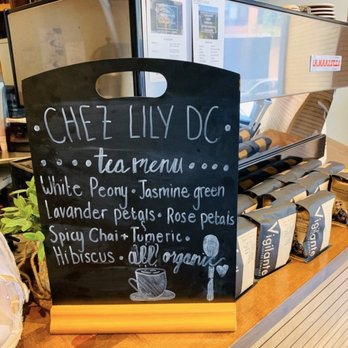 • CHEZ LILY DC •
• • • • tea menu • • • •
White Peony • Jasmine green
Lavander petals • Rose petals
Spicy Chai + Tumeric •
Hibiscus • all organic
Vigilante
Vigilante